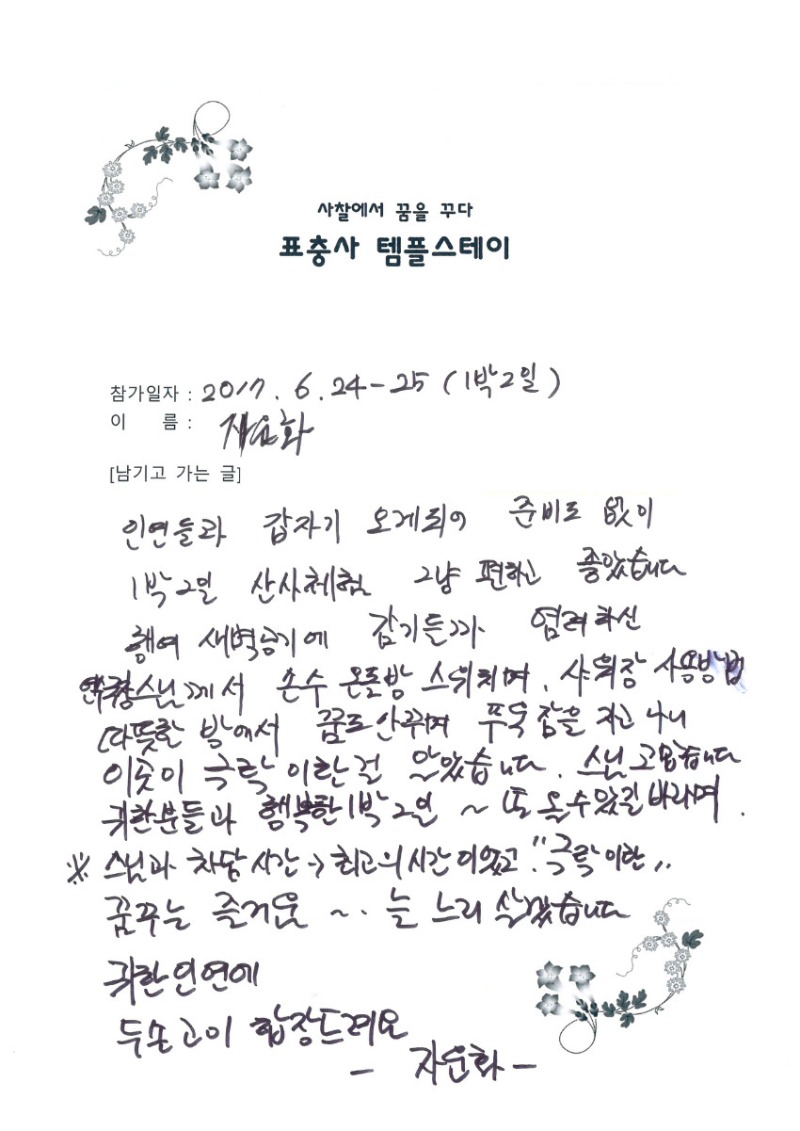 사찰에서 꿈을 꾸다
표충사 템플스테이
참가일자 : 2017. 6. 24 - 25 (1박2일)
이 름 : 자운화
[남기고 가는 글]
인연들과 갑자기 오게되어 준비도 없이
1박2일 산사체험 그냥 편하고 좋았습니다
행여 새벽공기에 감기들까 염려하신
스님께서 손수 온돌방 스위치며, 샤워장 사용방법
따뜻한 방에서 꿈도안꾸며 푸욱 잠을 자고 나니
이곳이 극락 이란걸 알았습니다. 스님 고맙습니다
귀한분들과 행복한 1박2일 ~ 또 올수있길 바라며.
※ 스님과 차담시간 → 최고의시간 이었고. "극락이란"
꿈꾸는 즐거움 ~. 늘 느리 살겠습니다
귀한인연에
두손고이 합장드려요
- 자운화 -